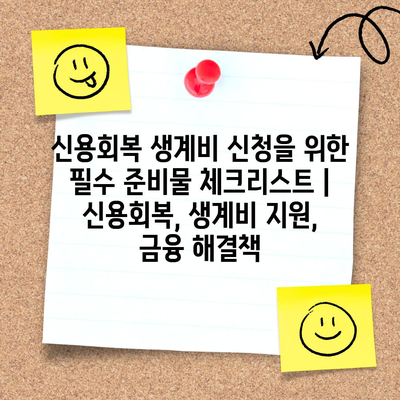 신용회복 생계비 신청을 위한
필수 준비물 체크리스트 |
신용회복, 생계비 지원,
금융 해결책